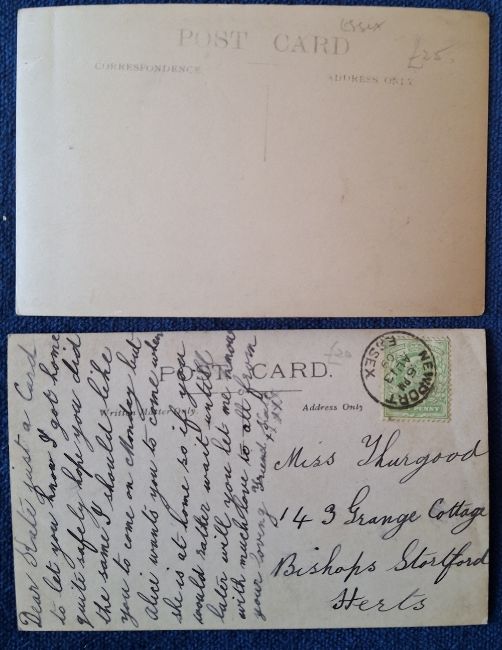 Essex
POST CARD
£25.
CORRESPONDENCE
ADDRESS ONLY
£20
POST CARD.
Written Matter Only
Address Only
NEWPORT
6 PM
ESSEX
PENNY
Dear Kate just a Card
to let you know I got home
quite safely hope you did
the same I should like
you to come on Monday but
Alice wants you to come when
she is at home so if you
would rather wait until
later will you let me know
with much love to all from
your loving friend
Miss Thurgood
143 Grange Cottage
Bishops Stortford
Herts